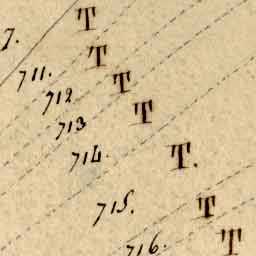 7. T
711. T
712 T
713 T
714. T.
715. T
716. T